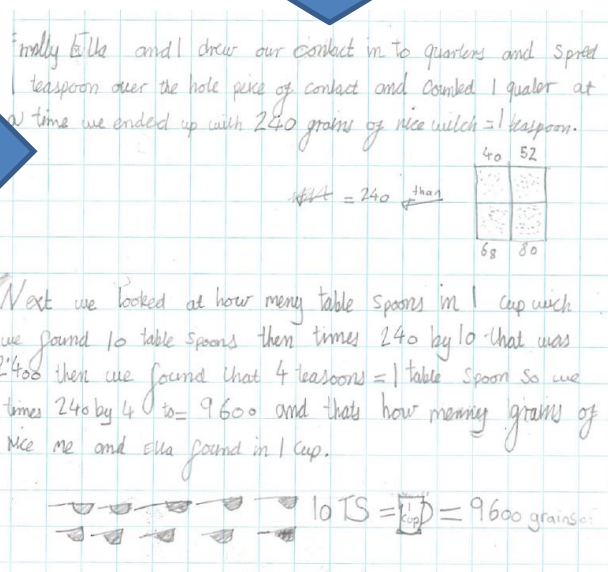 Firnally Ella and I drew our contact in to quarters and spred
1 teaspoon over the hole peice of contact and counted 1 quater at
a time we ended up with 240 grains of rice wilch = 1 teaspoon.
40 52
= 240 than
68 80
Next we looked at how meny table spoons in 1 cup wich
we found 10 table spoons then times 240 by 10 that was
2400 then we found that 4 teasoons = 1 table spoon so we
times 240 by 4 to = 9600 and thats how menny grains of
rice me and Ella found in 1 cup.
10 TS = 1 cup = 9600 grains